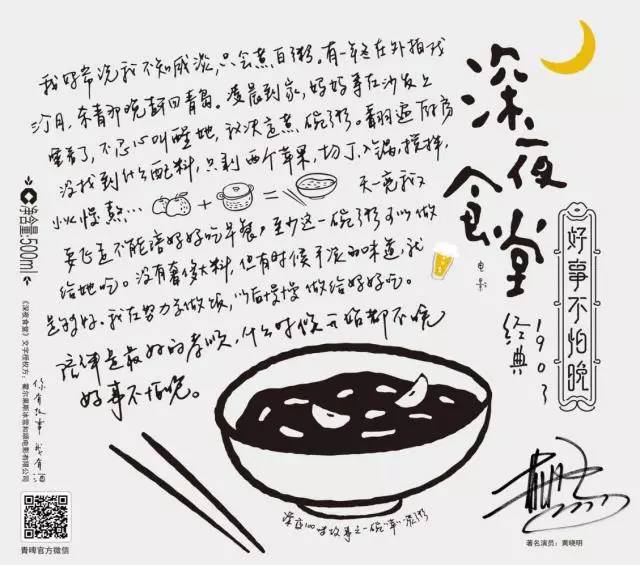 我妈常说我不知咸淡，只会煮白粥。有一年冬在外拍戏
几月，杀青那晚赶回青岛。凌晨到家，妈妈等在沙发上
睡着了，不忍心叫醒她，就决定煮一碗粥。翻遍厨房
没找到什么配料，只剩两个苹果，切丁入锅，搅拌，
小火慢熬…
天一亮我又
要飞走不能陪妈妈吃早餐，至少这一碗粥可以做
给她吃。没有奢侈大料，但有时候平淡的味道，就
是幸好。我在努力学做饭，以后慢慢做给妈妈吃。
陪伴是最好的孝顺，什么时候开始都不晚
好事不怕晚。
深夜食堂
电影
好事不怕晚
经典1903
净含量:500ml
《深夜食堂》文字授权方：霍尔果斯冰雪知道电影有限公司
你有故事 我有酒
青啤官方微信
深夜100味故事之一碗苹果粥
著名演员：黄晓明